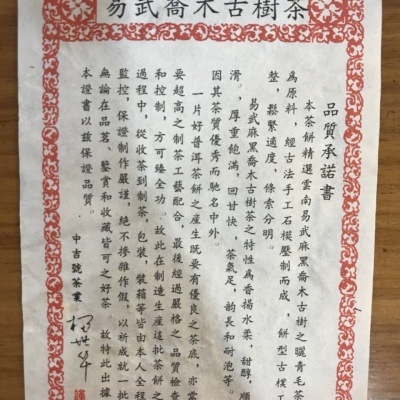 易武喬木古樹茶
品質承諾書
本茶餅精選雲南易武麻黑喬木古樹之曬青毛茶
為原料，經古法手工石模壓制而成，餅型古樸工
整，鬆緊適度，條索分明。
易武麻黑喬木古樹茶之特性為香揚水柔，甜醇，順
滑，厚重飽滿，回甘快，茶氣足，韵長和耐泡等。
因其茶質優秀而馳名中外。
一片好普洱茶餅之產生既要有優良之茶底，亦需
要超高之制茶工藝配合，最後經過嚴格之品質檢查
和控制，方可臻全功。故此在制造生産這批茶餅之
過程中，從收茶到制茶，包裝，裝箱等皆由本人全程
監控，保證制作嚴謹，絕不摻雜作假，以祈成就一批
無論在品茗、鑒賞和收藏皆可之好茶　故特此出據
本證書以兹保證品質。
中吉號茶業